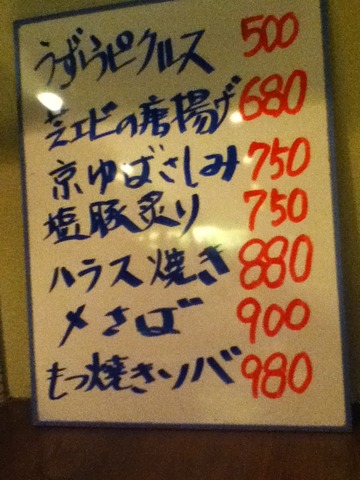 うずらピクルス 500
芝エビの唐揚げ 680
京ゆばさしみ 750
塩豚炙り 750
ハラス焼き 880
〆さば 900
もつ焼きソバ 980